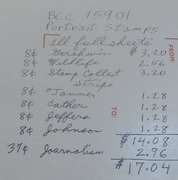 BCC 15901
Portrait Stamps
All full sheets
8¢ Gershwin $ 3.20
8¢ Wildlife 2.56
8¢ Stamp Collect 3.20
Strips
8¢ Tanner 1.28
8¢ Cather 1.28
8¢ Jeffers 1.28
8¢ Johnson 1.28
$ 14.08
37¢ Journalism 2.96
$ 17.04
FROM
TO